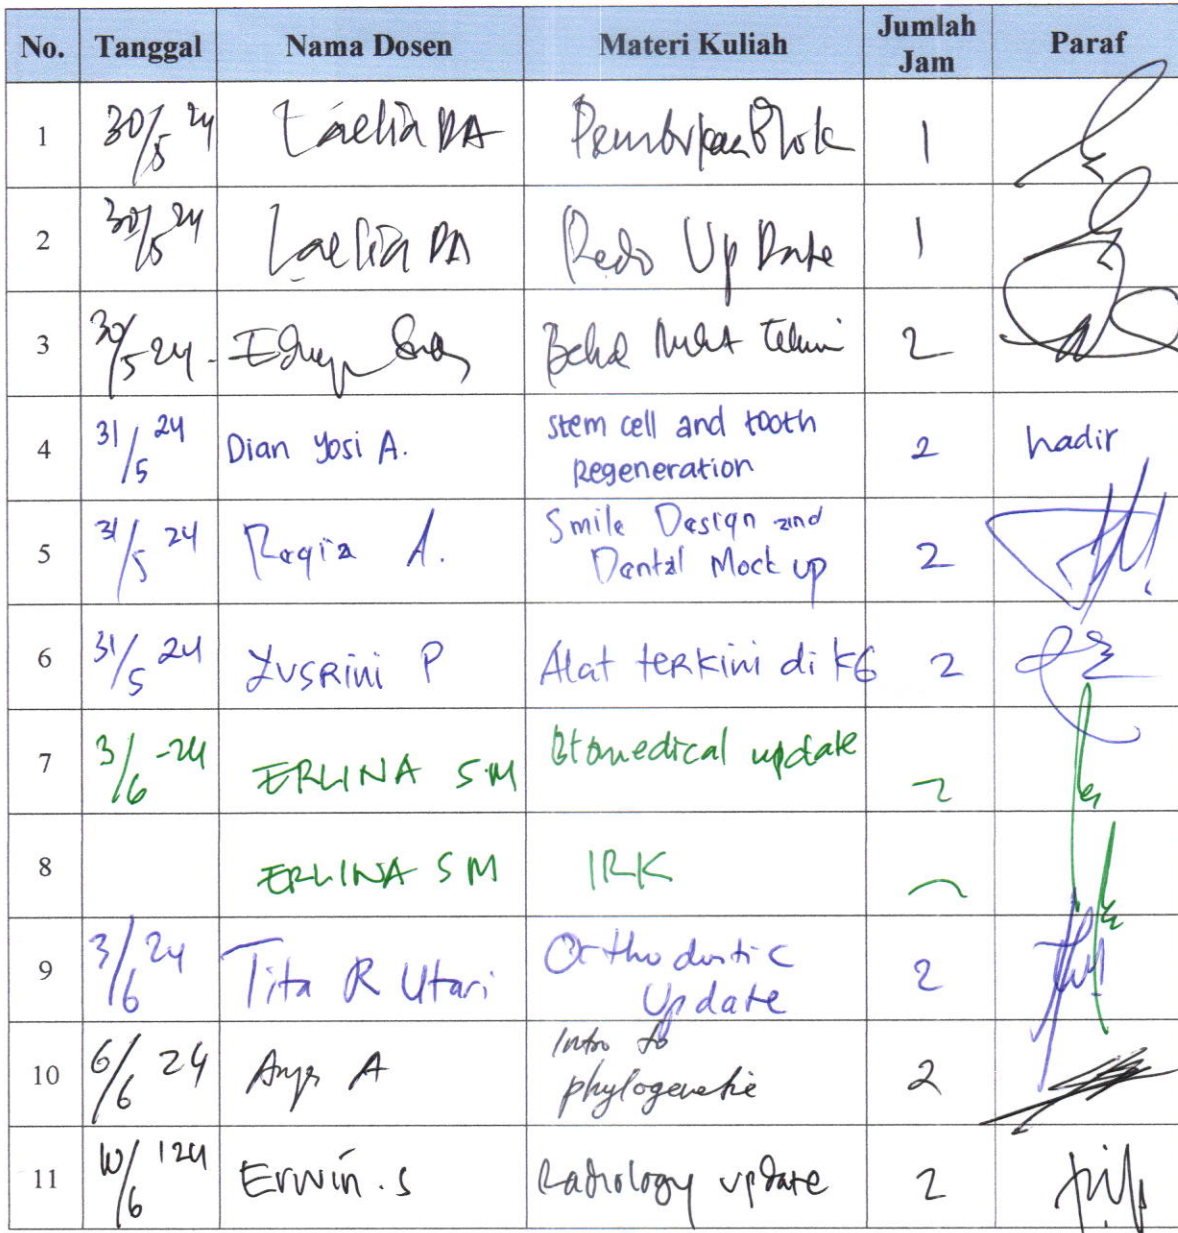 No. Tanggal Nama Dosen Materi Kuliah Jumlah Jam Paraf
1 30/5 24 Laelia DA Pembukaan Blok 1
2 30/5 24 Laelia DA Pedo Up Date 1
3 30/5-24 2
4 31/5 24 Dian Yosi A. stem cell and tooth Regeneration 2 hadir
5 31/5 24 Regia A. Smile Design and Dental Mock up 2
6 31/5 24 Yusrini P Alat terkini di KG 2
7 3/6-24 ERLINA S.M Biomedical update 2
8 ERLINA SM IRK
9 3/6 24 Tita R Utari Orthodontic Update 2
10 6/6 24 A Intro to phylogenetic 2
11 10/6 24 Erwin.S Radiology update 2